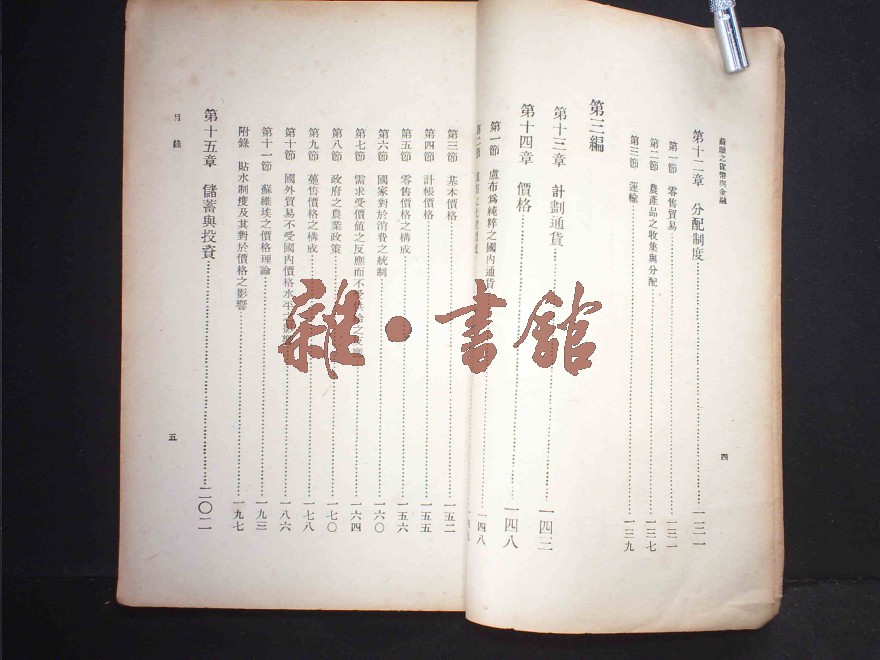 蘇聯之貨幣與金融
四
第十二章 分配制度……一二一
第一節 零售貿易……一三一
第二節 農產品之收集與分配……一三七
第三節 運輸……一三九
第三編
第十三章 計劃通貨……一四三
第十四章 價格……一四八
第一節 盧布爲純粹之國內通貨……一四八
第二節
第三節 基本價格……一五二
第四節 計帳價格……一五五
第五節 零售價格之構成……一五六
第六節 國家對於消費之統制……一六〇
第七節 需求受價值之反應而不受供給之反應……一六四
第八節 政府之農業政策……一七〇
第九節 躉售價格之構成……一七八
第十節 國外貿易不受國內價格水平之……一八六
第十一節 蘇維埃之價格理論……一九三
附錄 貼水制度及其對於價格之影響……一九七
第十五章 儲蓄與投資……二〇二
目錄
五
雜·書館